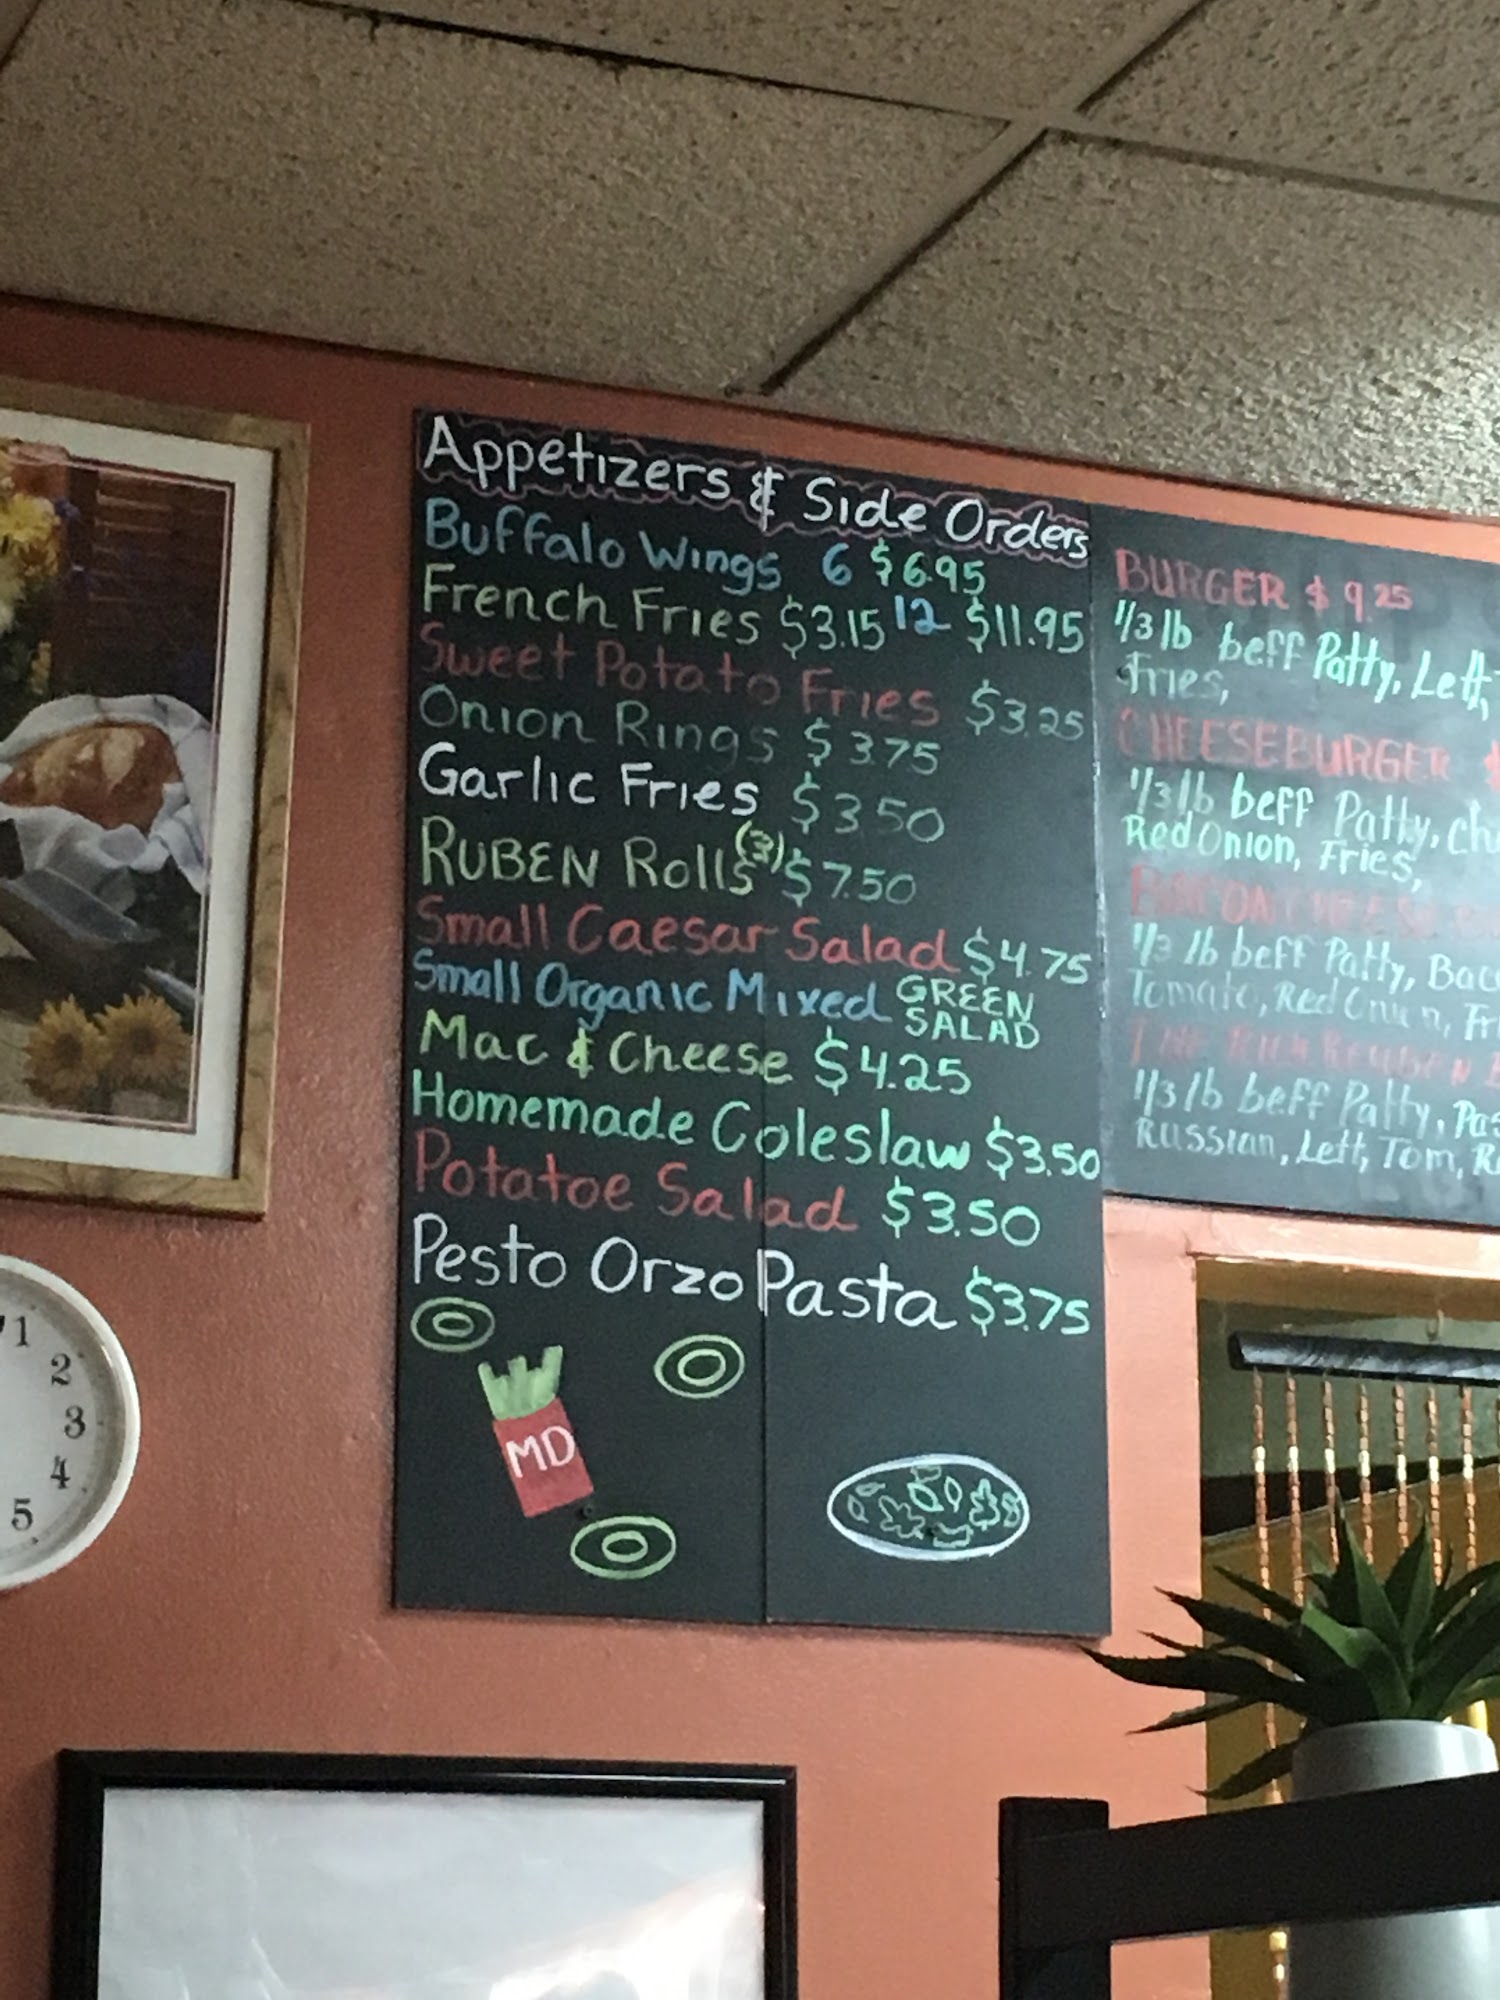 Appetizers & Side Orders
Buffalo Wings 6 $6.95
French Fries $3.15 12 $11.95
Sweet Potato Fries $3.25
Onion Rings $3.75
Garlic Fries $3.50
RUBEN Rolls (3) $7.50
Small Caesar Salad $4.75
Small Organic Mixed GREEN SALAD
Mac & Cheese $4.25
Homemade Coleslaw $3.50
Potatoe Salad $3.50
Pesto Orzo Pasta $3.75
MD
BURGER $9.25
1/3 lb beff Patty, Lett,
Fries,
CHEESEBURGER $
1/3 lb beff Patty, Ch
Red Onion, Fries,
1/3 lb beff Patty, Bac
Tomato, Red Onion, Fr
1/3 lb beff Patty, Pas
Russian, Lett, Tom, R
1
2
3
4
5